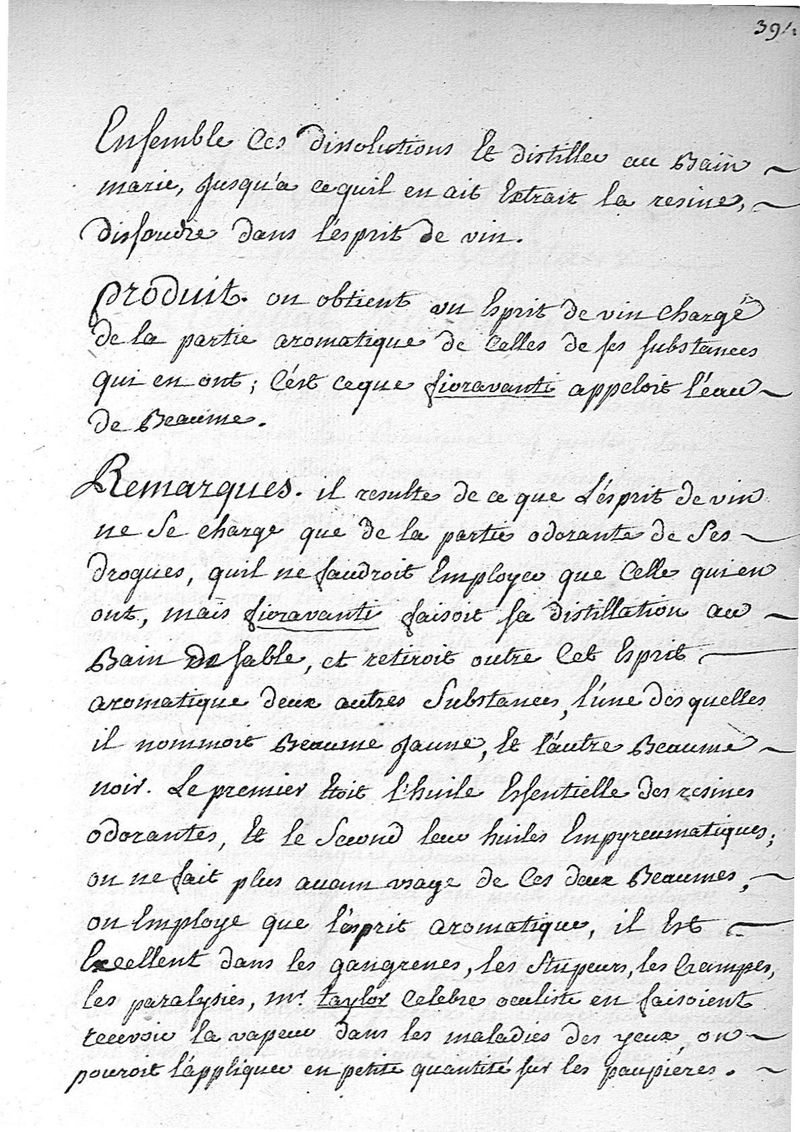 391.
Ensemble Ces dissolutions Et distiller au Bain
marie, Jusqu'a cequil en ait Extrait la resine,
Dissoudre dans l'ésprit de vin.
Produit. on obtient un Esprit de vin chargé
de la partie aromatique de Celles de ses substances
qui en ont; C'ést ceque fioravanti appeloit l'éau
de Beaume.
Remarques. il resulte de ce que L'ésprit de vin
ne Se charge que de la partie odorante de Ses
drogues, quil ne faudroit Employer que Celle qui en
ont, mais fioravanti faisoit sa distillation au
Bain de sable, et retiroit outre Cet Esprit
aromatique deux autres Substances, l'une des quelles
il nommoit Beaume Jaune, Et l'autre Beaume
noir. Le premier Etoit l'huile Essentielle des resines
odorantes, Et le Second leur huiles Empyreumatiques;
on ne fait plus aucun usage de Ces deux Beaumes,
on Employe que l'ésprit aromatique, il Est
Excellent dans les gangrenes, les Stupeurs, les Crampes,
les paralysies, mr. taylor Celebre oculiste en faisoient
recevoir la vapeur dans les maladies des yeux, on
pouroit l'áppliquer en petite quantité sur les paupiéres.